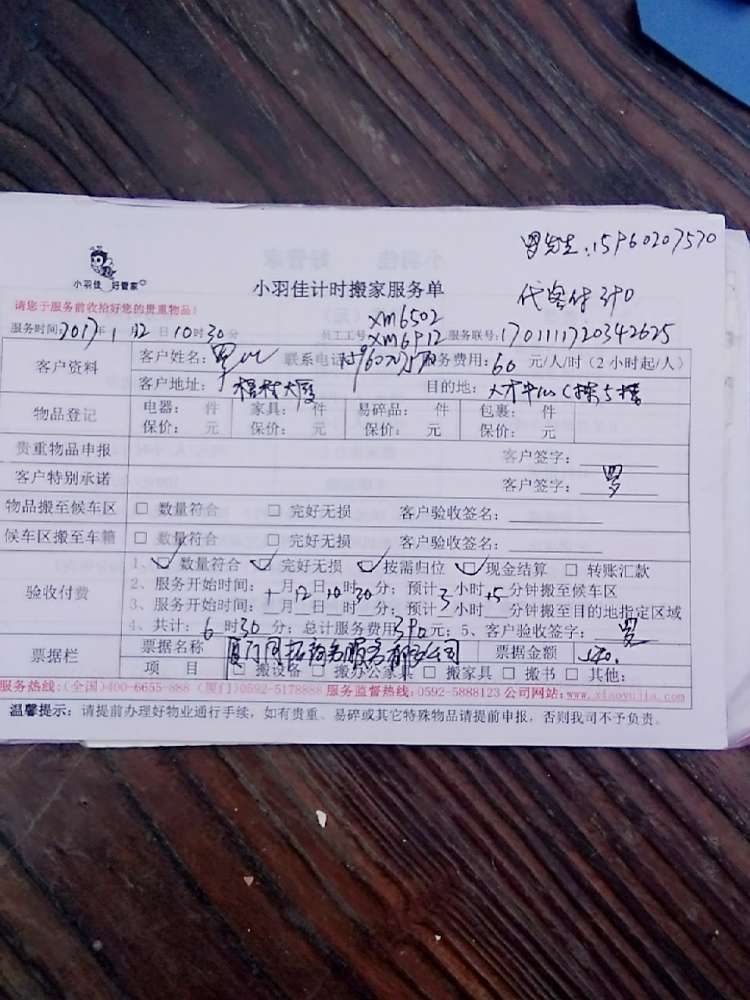 罗先生:15960207570
小羽佳 好管家
小羽佳计时搬家服务单
代客付
请您于服务前收拾好您的贵重物品!
xm6502
服务时间:2017年1月12日10时30分 员工工号: xm6912 服务联号:1701111720342625
客户资料
客户姓名:罗 联系电话: 服务费用:60元/人/时(2小时起/人)
客户地址: 大厦 目的地:人才中心C栋5楼
物品登记
电器: 件 家具: 件 易碎品: 件 包裹: 件
保价: 元 保价: 元 保价: 元 保价: 元
贵重物品申报 客户签字:
客户特别承诺 客户签字:罗
物品搬至候车区 □ 数量符合 □ 完好无损 客户验收签名:
候车区搬至车箱 □ 数量符合 □ 完好无损 客户验收签名:
验收付费
1、☑ 数量符合 ☑ 完好无损 ☑ 按需归位 ☑ 现金结算 □ 转账汇款
2、服务开始时间:1月12日10时30分;预计3小时 分钟搬至候车区
3、服务开始时间: 月 日 时 分;预计3小时 分钟搬至目的地指定区域
4、共计:6时30分;总计服务费用390元;5、客户验收签字:罗
票据栏
票据名称 厦门 服务有限公司 票据金额
项 目 □ 搬设备 □ 搬办公家具 □ 搬家具 □ 搬书 □ 其他:
服务热线:(全国)400-6655-888 (厦门)0592-5178888 服务监督热线:0592-5888123 公司网站:www.xiaoyujia.com
温馨提示:请提前办理好物业通行手续,如有贵重、易碎或其它特殊物品请提前申报,否则我司不予负责。